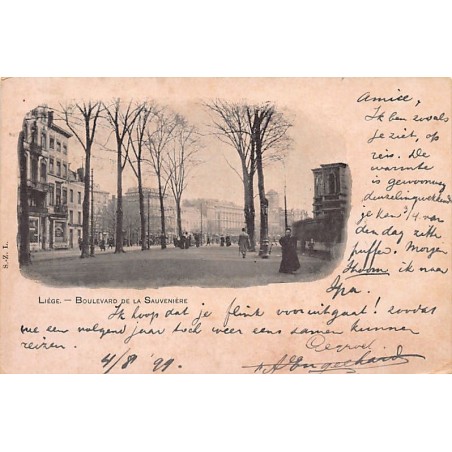 Amice,
Ik ben zooals
je ziet, op
reis. De
warmte
is gewoonweg
je kan 't van
den dag zitten
puffen. Morgen
stoom ik naar
Spa.
S.-Z. L.
LIÉGE. — BOULEVARD DE LA SAUVENIÈRE
Ik hoop dat je flink vooruitgaat! zoodat
we een volgend jaar toch weer eens samen kunnen
reizen.
Gegroet
4/8 '99.